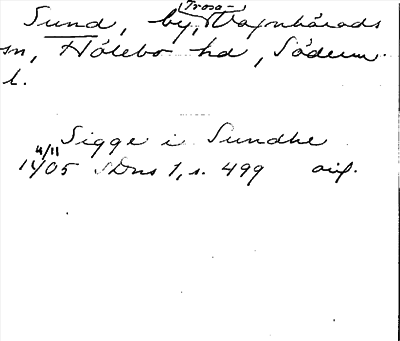 Trosa-
Sund, by, Vagnhärads
sn, Hölebo hd, Söderm.
l.
Sigge i Sundhe
4/11
1405 SDns 1, s. 499 orig.